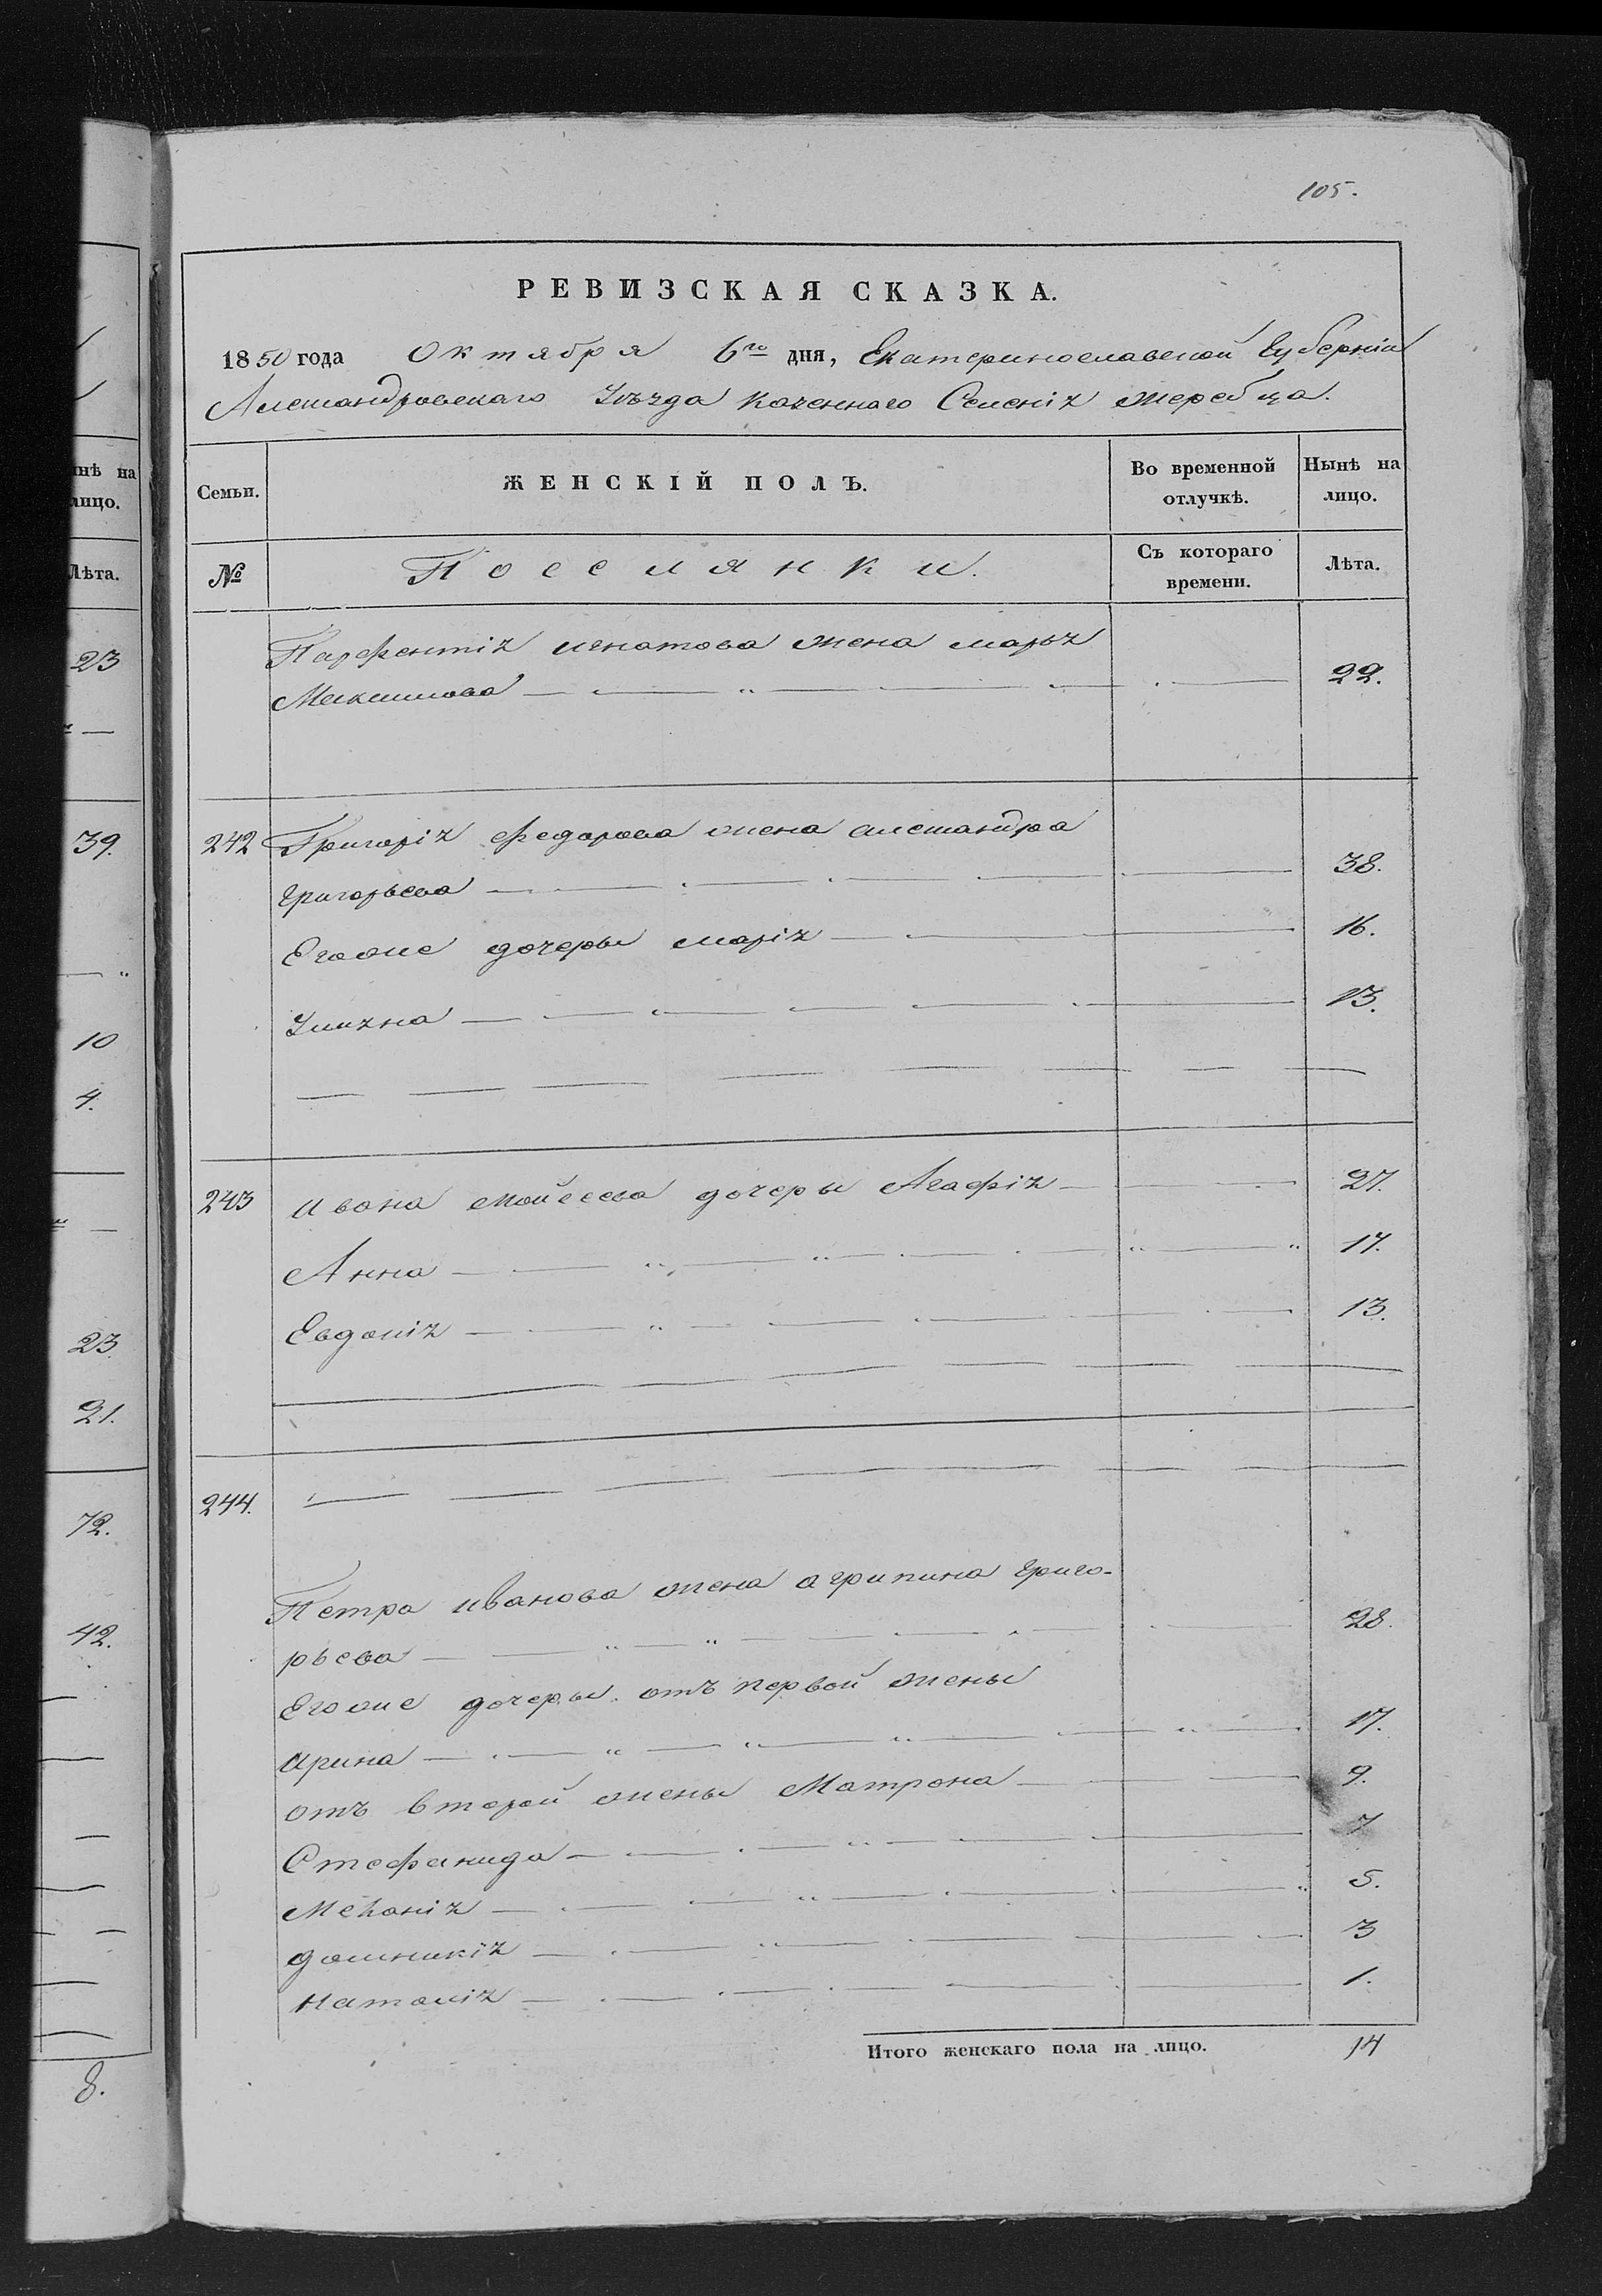 105.
РЕВИЗСКАЯ СКАЗКА.
1850 года Октября 6го дня, Екатеринославской Губерніи
Александровскаго Уѣзда казеннаго Селенія жеребца.
Семьи. ЖЕНСКІЙ ПОЛЪ. Во временной отлучкѣ. Нынѣ на лицо.
№ Поселянки. Съ котораго времени. Лѣта.
Парфентія игнатова жена марья
Максимова 22.
242 Григорія федорова жена александра
григорьева 38.
Егоже дочеры марія 16.
Улияна 13.
243 ивана мойсеева дочеры Агафія 27.
Анна 17.
Евдокія 13.
244.
Петра иванова жена агрипина григо-
рьева 28.
Егоже дочеры отъ первой жены
ирина 17.
отъ второй жены Матрона 9.
Стефанида 7
Меланія 5.
домникія 3
наталія 1.
Итого женскаго пола на лицо. 14
нѣ на
лицо.
Лѣта.
23
39.
10
4.
23.
21.
72.
42.
8.